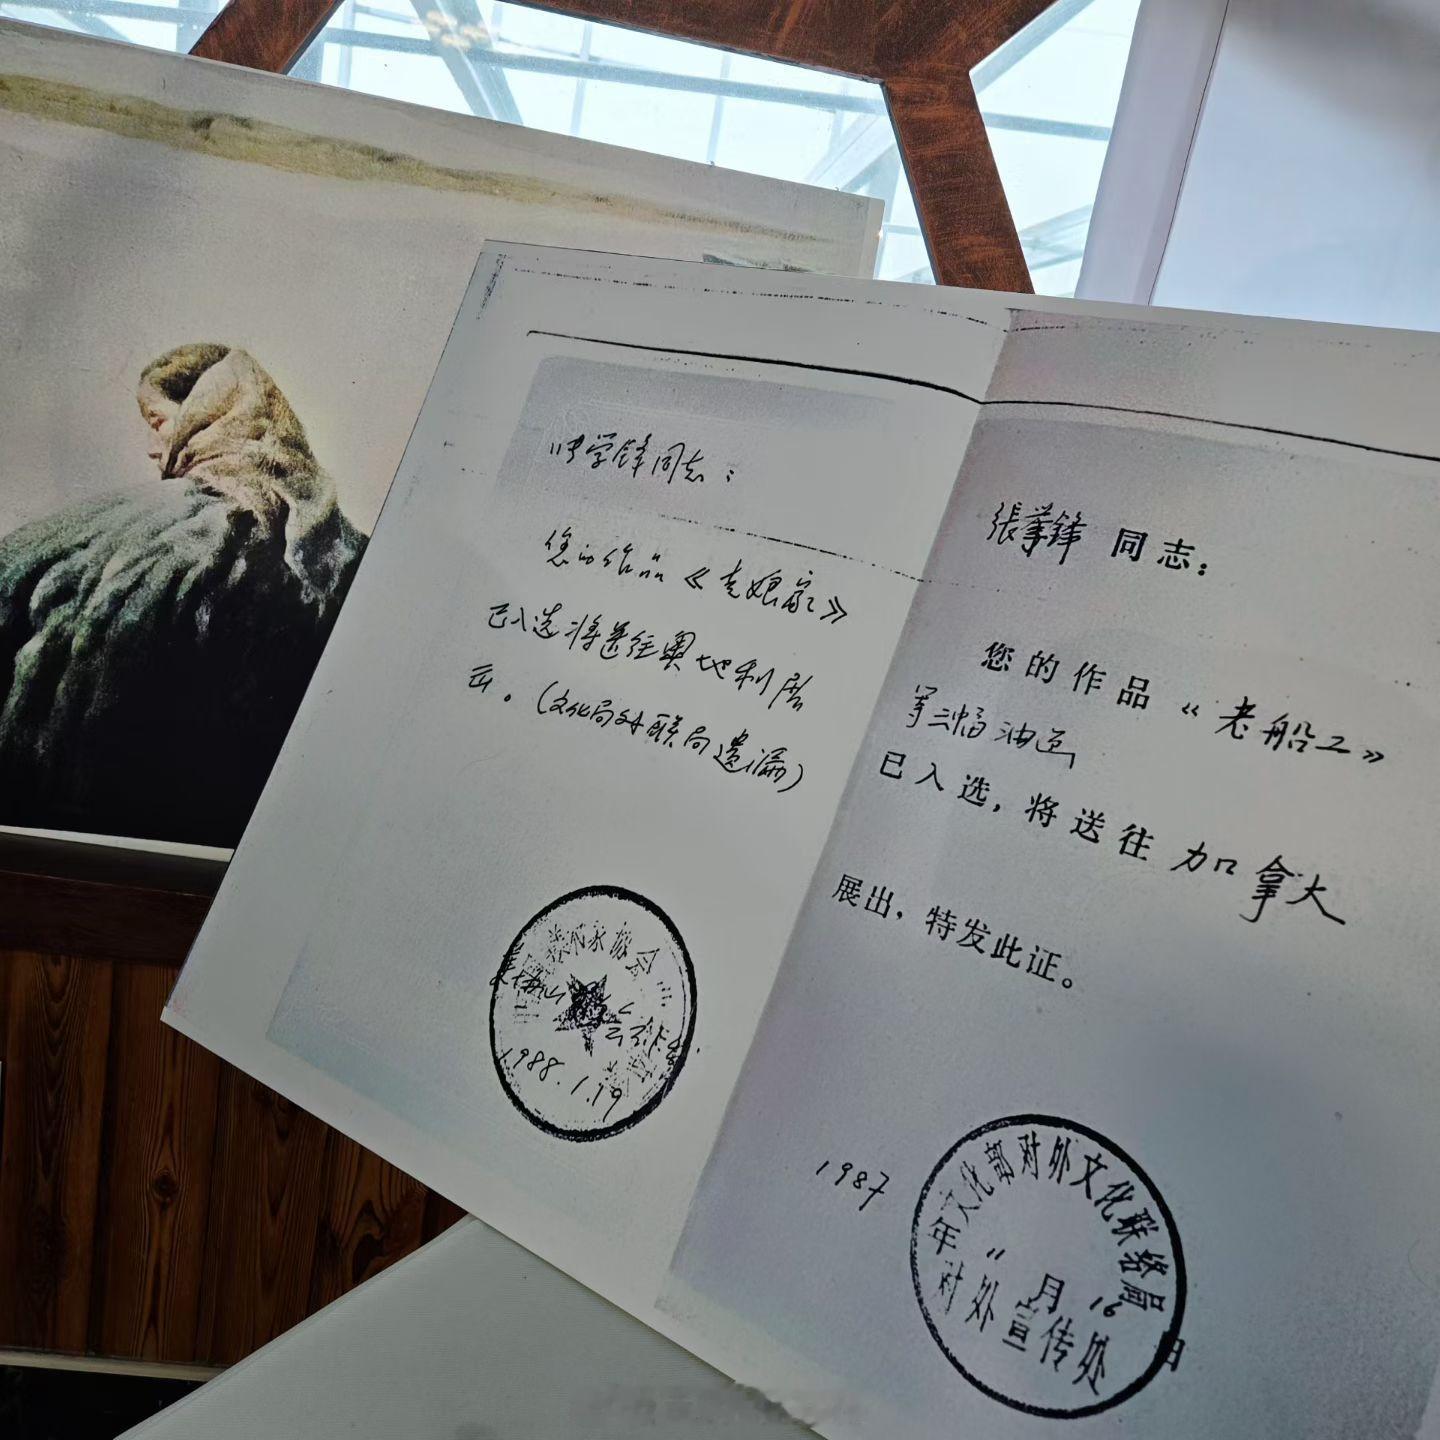 学锋同志：
您的作品《老娘家》
已入选将送往奥地利展
出。(文化局对联局遗漏)
美术家协会
1988.1.19
张学锋 同志：
您的作品《老船工》
等三幅油画
已入选，将送往 加拿大
展出，特发此证。
文化部对外文化联络局
1987 年 11 月 16 日
对外宣传处